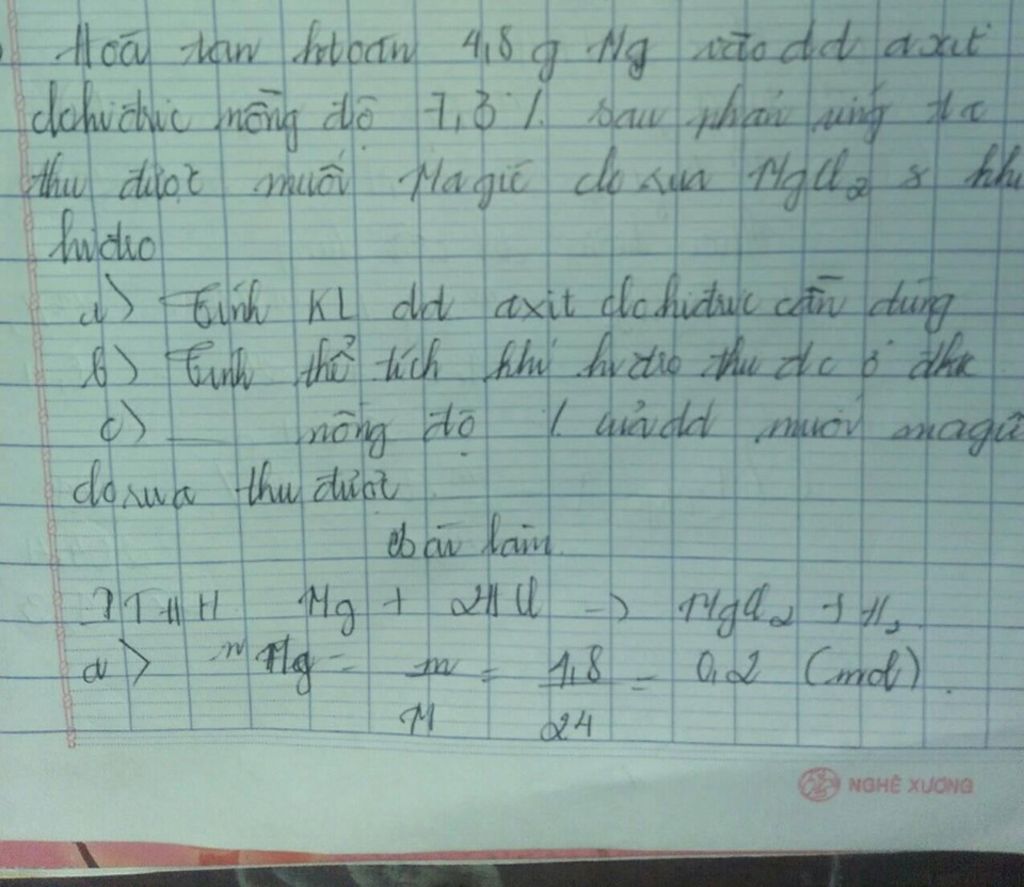 Hoà tan htoàn 4,8 g Mg vào dd axit
clohiđric nồng độ 7,3 % sau phản ứng ta
thu được muối Magiê clorua MgCl2 & khí
hiđro
a) Tính KL dd axit clohiđric cần dùng
b) Tính thể tích khí hiđro thu đc ở đktc
c) ___ nồng độ % của dd muối magiê
clorua thu được
Bài làm
PTHH Mg + 2HCl -> MgCl2 + H2
a) nMg = m/M = 4,8/24 = 0,2 (mol).
NGHÊ XUONG